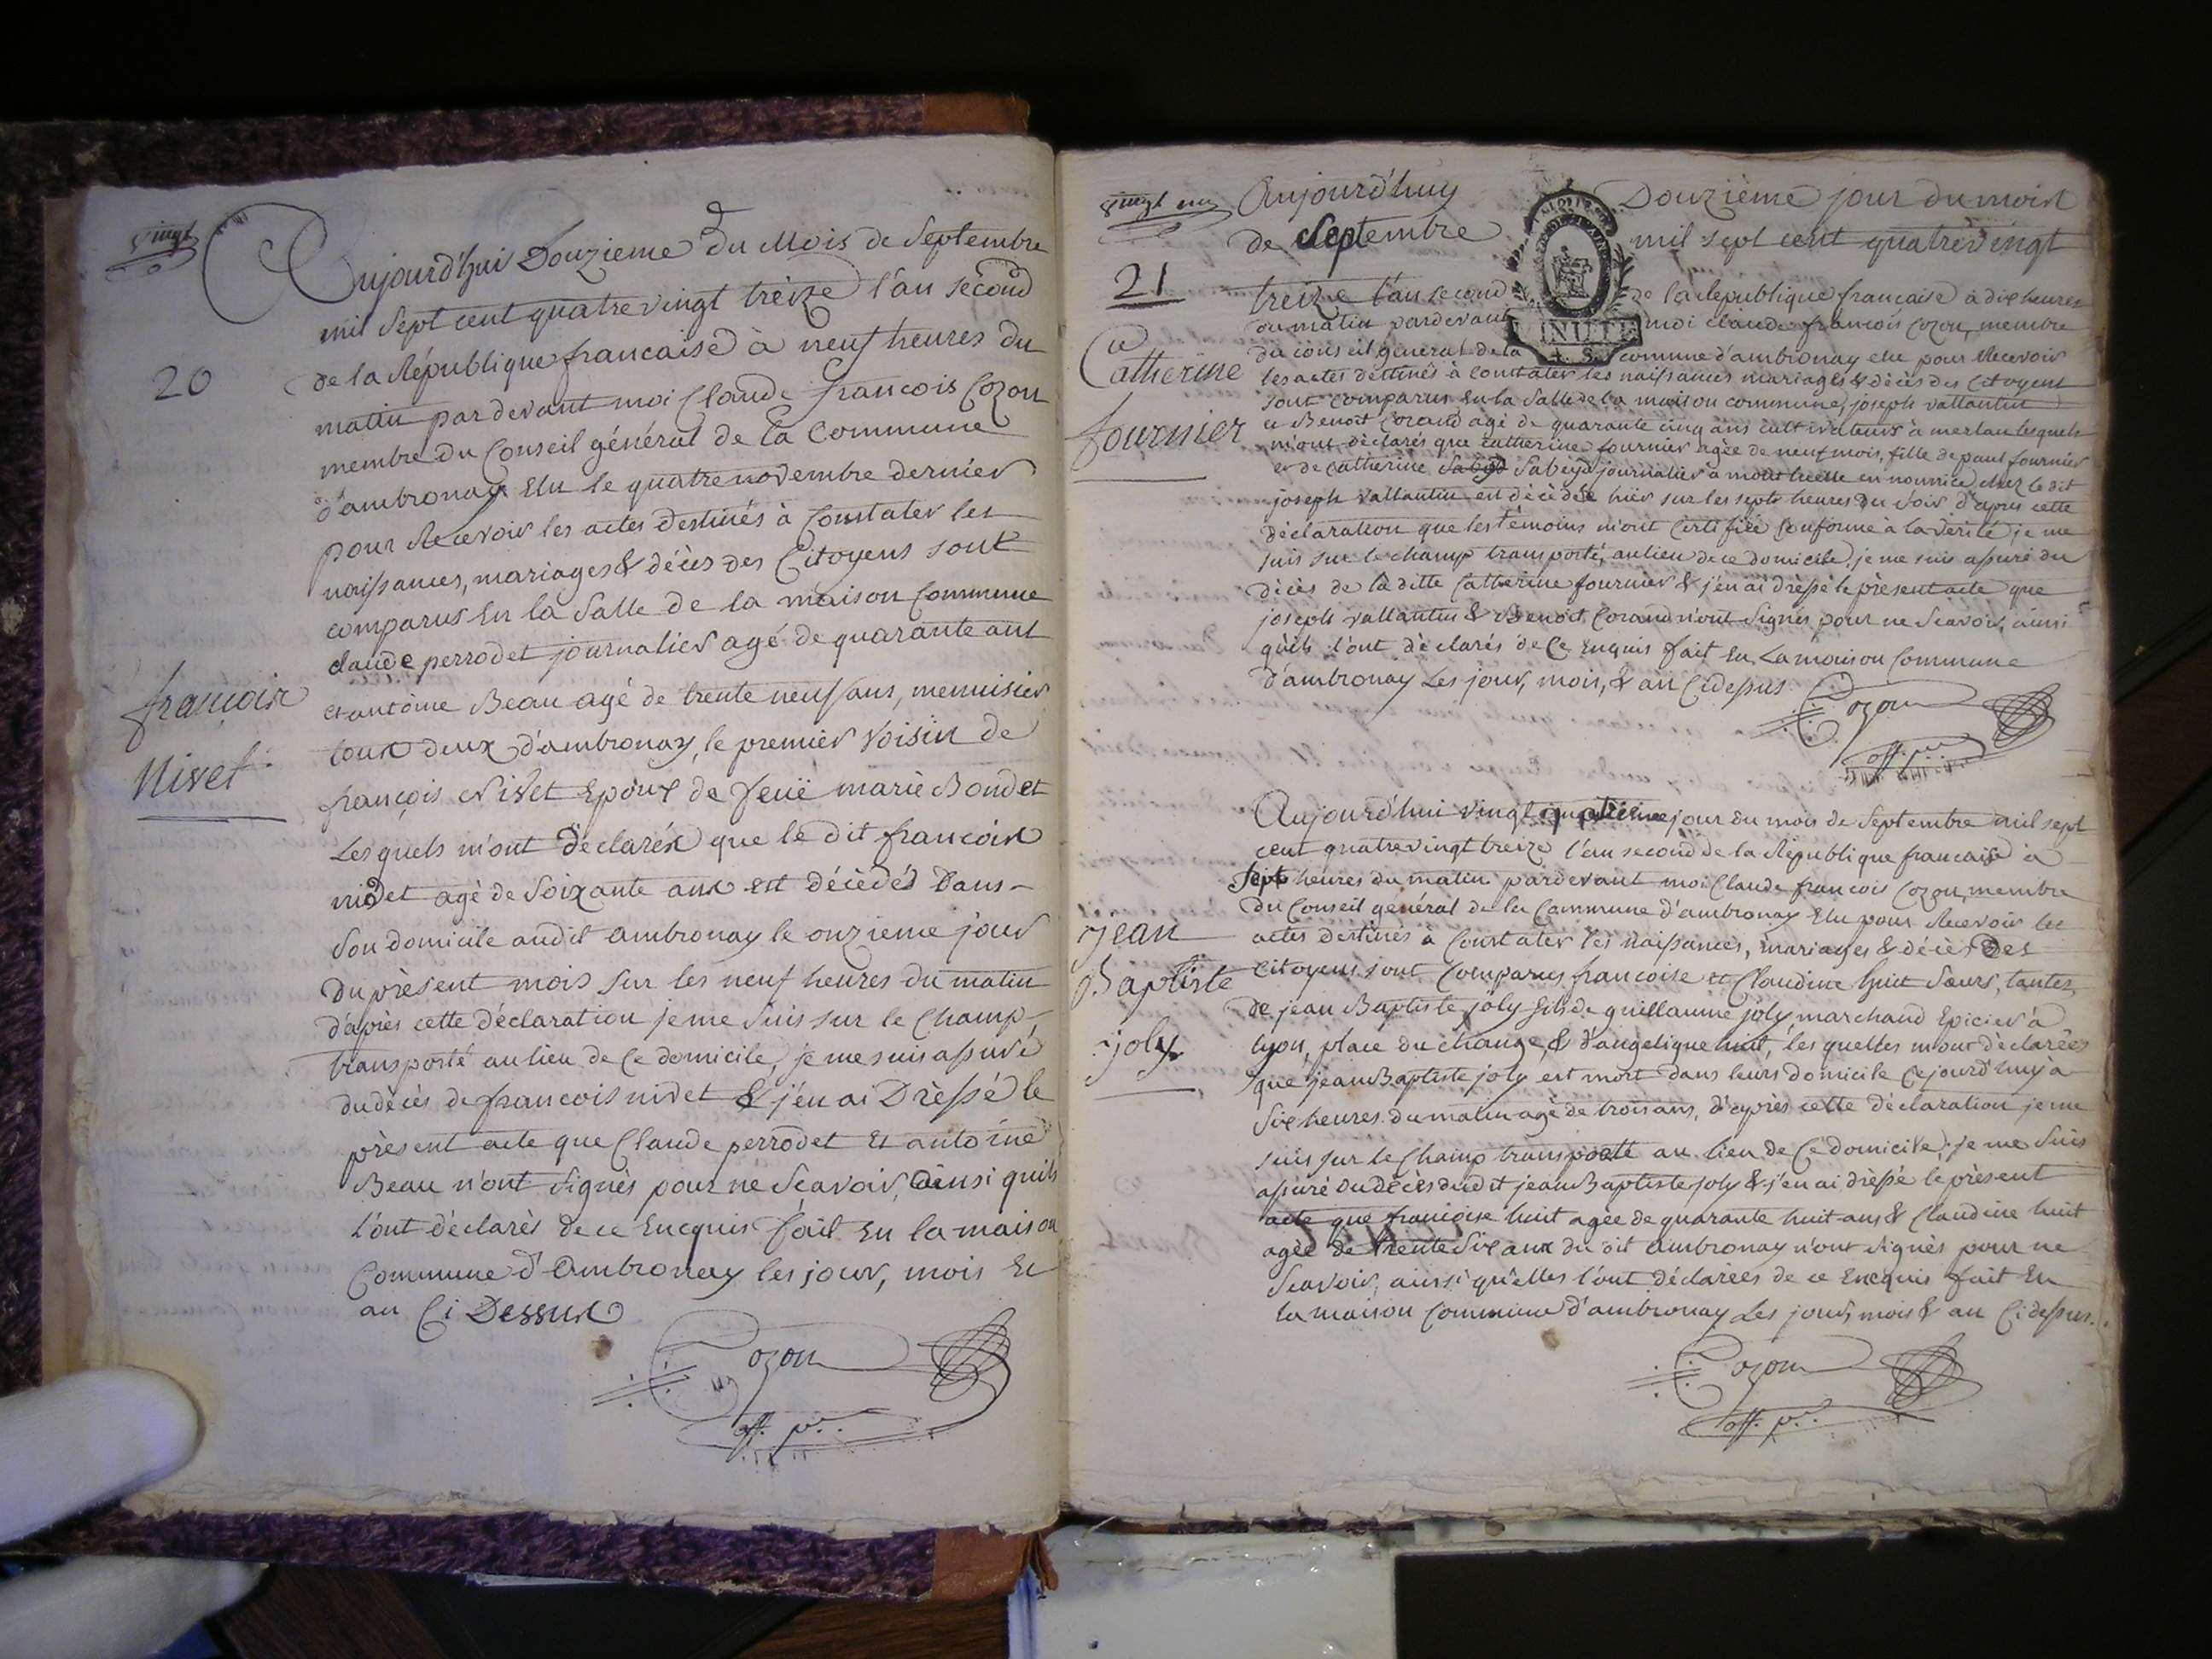 vingt
20
françois
Nivet
Aujourd'hui Douzieme du Mois de Septembre
mil Sept cent quatre vingt treize l'an second
de la République francaise à neuf heures du
matin pardevant moi Claude francois Cozon
membre du Conseil général de la Commune
d'ambronay Elu le quatre novembre dernier
pour Recevoir les actes destinés à Constater les
naissances, mariages & décès des Citoyens sont
comparus En la Salle de la maison Commune
claude perrodet journalier agé de quarante ans
et antoine Beau agé de trente neuf ans, menuisier
tous deux d'ambronay, le premier Voisin de
françois Nivet Epoux de feuë marie Bondet
Lesquels m'ont déclarés que le dit francois
nivet agé de Soixante ans est décédés Dans
Son domicile audit ambronay le onzieme jour
du présent mois sur les neuf heures du matin
d'après cette déclaration je me suis sur le Champ
transporté au lieu de Ce domicile, je me suis assuré
du décès de francois nivet & j'en ai Dressé le
présent acte que Claude perrodet Et antoine
Beau n'ont Signés pour ne Scavoir, ainsi quils
L'ont déclarés de ce Encquis fait En la maison
Commune d'ambronay les jour, mois Et
an Ci Dessus
Cozon
off. p.
vingt un
21
Catherine
fournier
Aujourd'huy Douzième jour du mois
de Septembre mil sept cent quatrevingt
treize l'an second de la République francaise à dix heures
du matin pardevant moi claude francois Cozon, membre
du conseil général de la comune d'ambronay elu pour Recevoir
les actes destinés à constater les naissances mariages & décès des Citoyens
sont comparus En la Salle de la maison commune, joseph vallantin
et Benoit Corand agé de quarante cinq ans cultivateurs à merlan lesquels
m'ont déclarés que catherine fournier agée de neuf mois, fille de paul fournier
et de Catherine Sabeyd journalier à en nourrice chez le dit
joseph vallantin est décédée hier sur les septs heures du soir d'après cette
déclaration que les témoins m'ont Certifiée Conforme à la vérité, je me
suis sur le champ transporté, au lieu de ce domicile, je me suis assuré du
décès de la ditte Catherine fournier & j'en ai dressé le présent acte que
joseph vallantin & Benoit Corand n'ont Signés pour ne Scavoir, ainsi
qu'ils l'ont déclarés de Ce Enquis fait En La maison Commune
d'ambronay Les jour, mois, & an Cidessus
Cozon
off. p.
jean
Baptiste
joly
Aujourd'hui vingt quatrieme jour du mois de Septembre mil sept
cent quatrevingt treize l'an second de la République francaise à
Sept heures du matin pardevant moi Claude francois Cozon, membre
du Conseil général de la Commune d'ambronay Elu pour Recevoir les
actes destinés à Constater les naissances, mariages & décès Des
Citoyens sont Comparus francoise et Claudine huit Soeurs, tantes
de jean Baptiste joly fils de guillaume joly marchand Epicier à
Lyon, place du change, & d'angelique huit, les quelles m'ont déclarées
que jean Baptiste joly est mort dans leurs domicile Cejourd'huy à
Six heures du matin agé de trois ans, d'après cette déclaration je me
suis sur le Champ transporté au lieu de Ce domicile, je me Suis
assuré du décès dudit jean Baptiste joly & j'en ai dressé le présent
acte que francoise huit agée de quarante huit ans & Claudine huit
agée de trente Six ans du dit ambronay n'ont signés pour ne
Scavoir, ainsi qu'elles l'ont déclarées de ce Encquis fait En
la maison Commune d'ambronay Les jour, mois & an Cidessus.
Cozon
off. p.